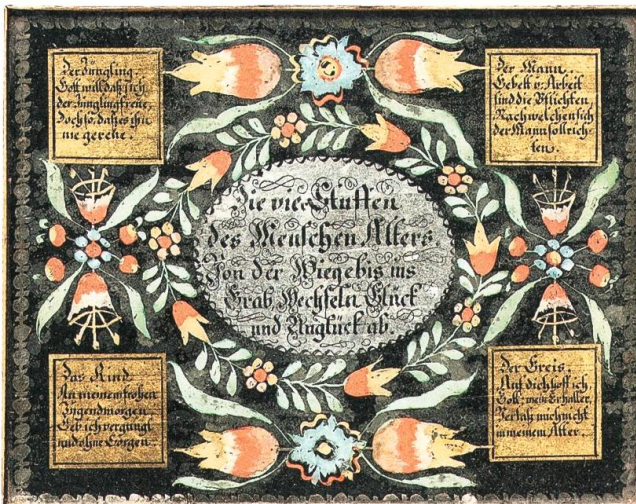 Der Jüngling
Gott will daß sich
der Jüngling freue,
Doch so, daß es ihn
nie gereue.
Der Mann.
Gebett u: Arbeit
sind die Pflichten
Nach welchen sich
der Mann soll rich-
ten.
Die vier Stuffen
des Menschen Alters.
Von der Wiege bis ins
Grab Wechseln Glück
und Unglück ab.
Das Kind
An meinem frohen
Jugendmorgen
Geh ich vergnügt
und ohne Sorgen
Der Greis.
Auf dich hoff ich,
Gott, mein Erhalter,
Verlaß mich nicht
in meinem Alter.